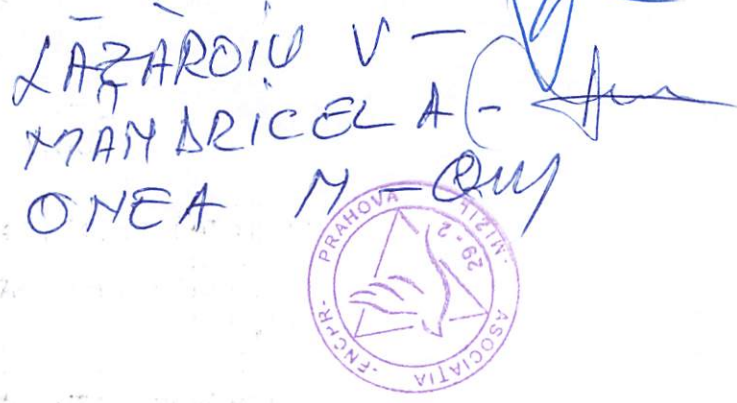 LĂZĂROIU V -
MÂNDRICEL A -
ONEA M -
ASOCIAȚIA FNCPR PRAHOVA MIZIL
29-2